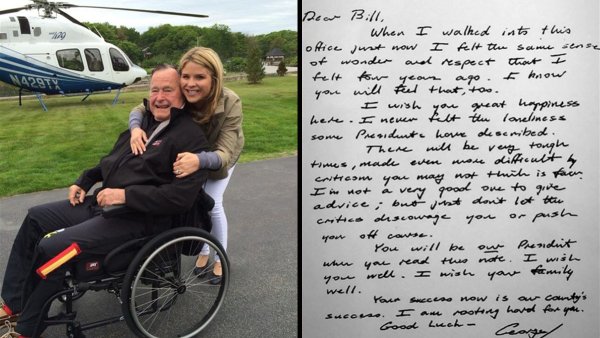 N429TX
Dear Bill,
When I walked into this
office just now I felt the same sense
of wonder and respect that I
felt four years ago. I know
you will feel that, too.
I wish you great happiness
here. I never felt the loneliness
some Presidents have described.
There will be very tough
times, made even more difficult by
criticism you may not think is fair.
I'm not a very good one to give
advice; but just don't let the
critics discourage you or push
you off course.
You will be our President
when you read this note. I wish
you well. I wish your family
well.
Your success now is our country's
success. I am rooting hard for you.
Good Luck –
George